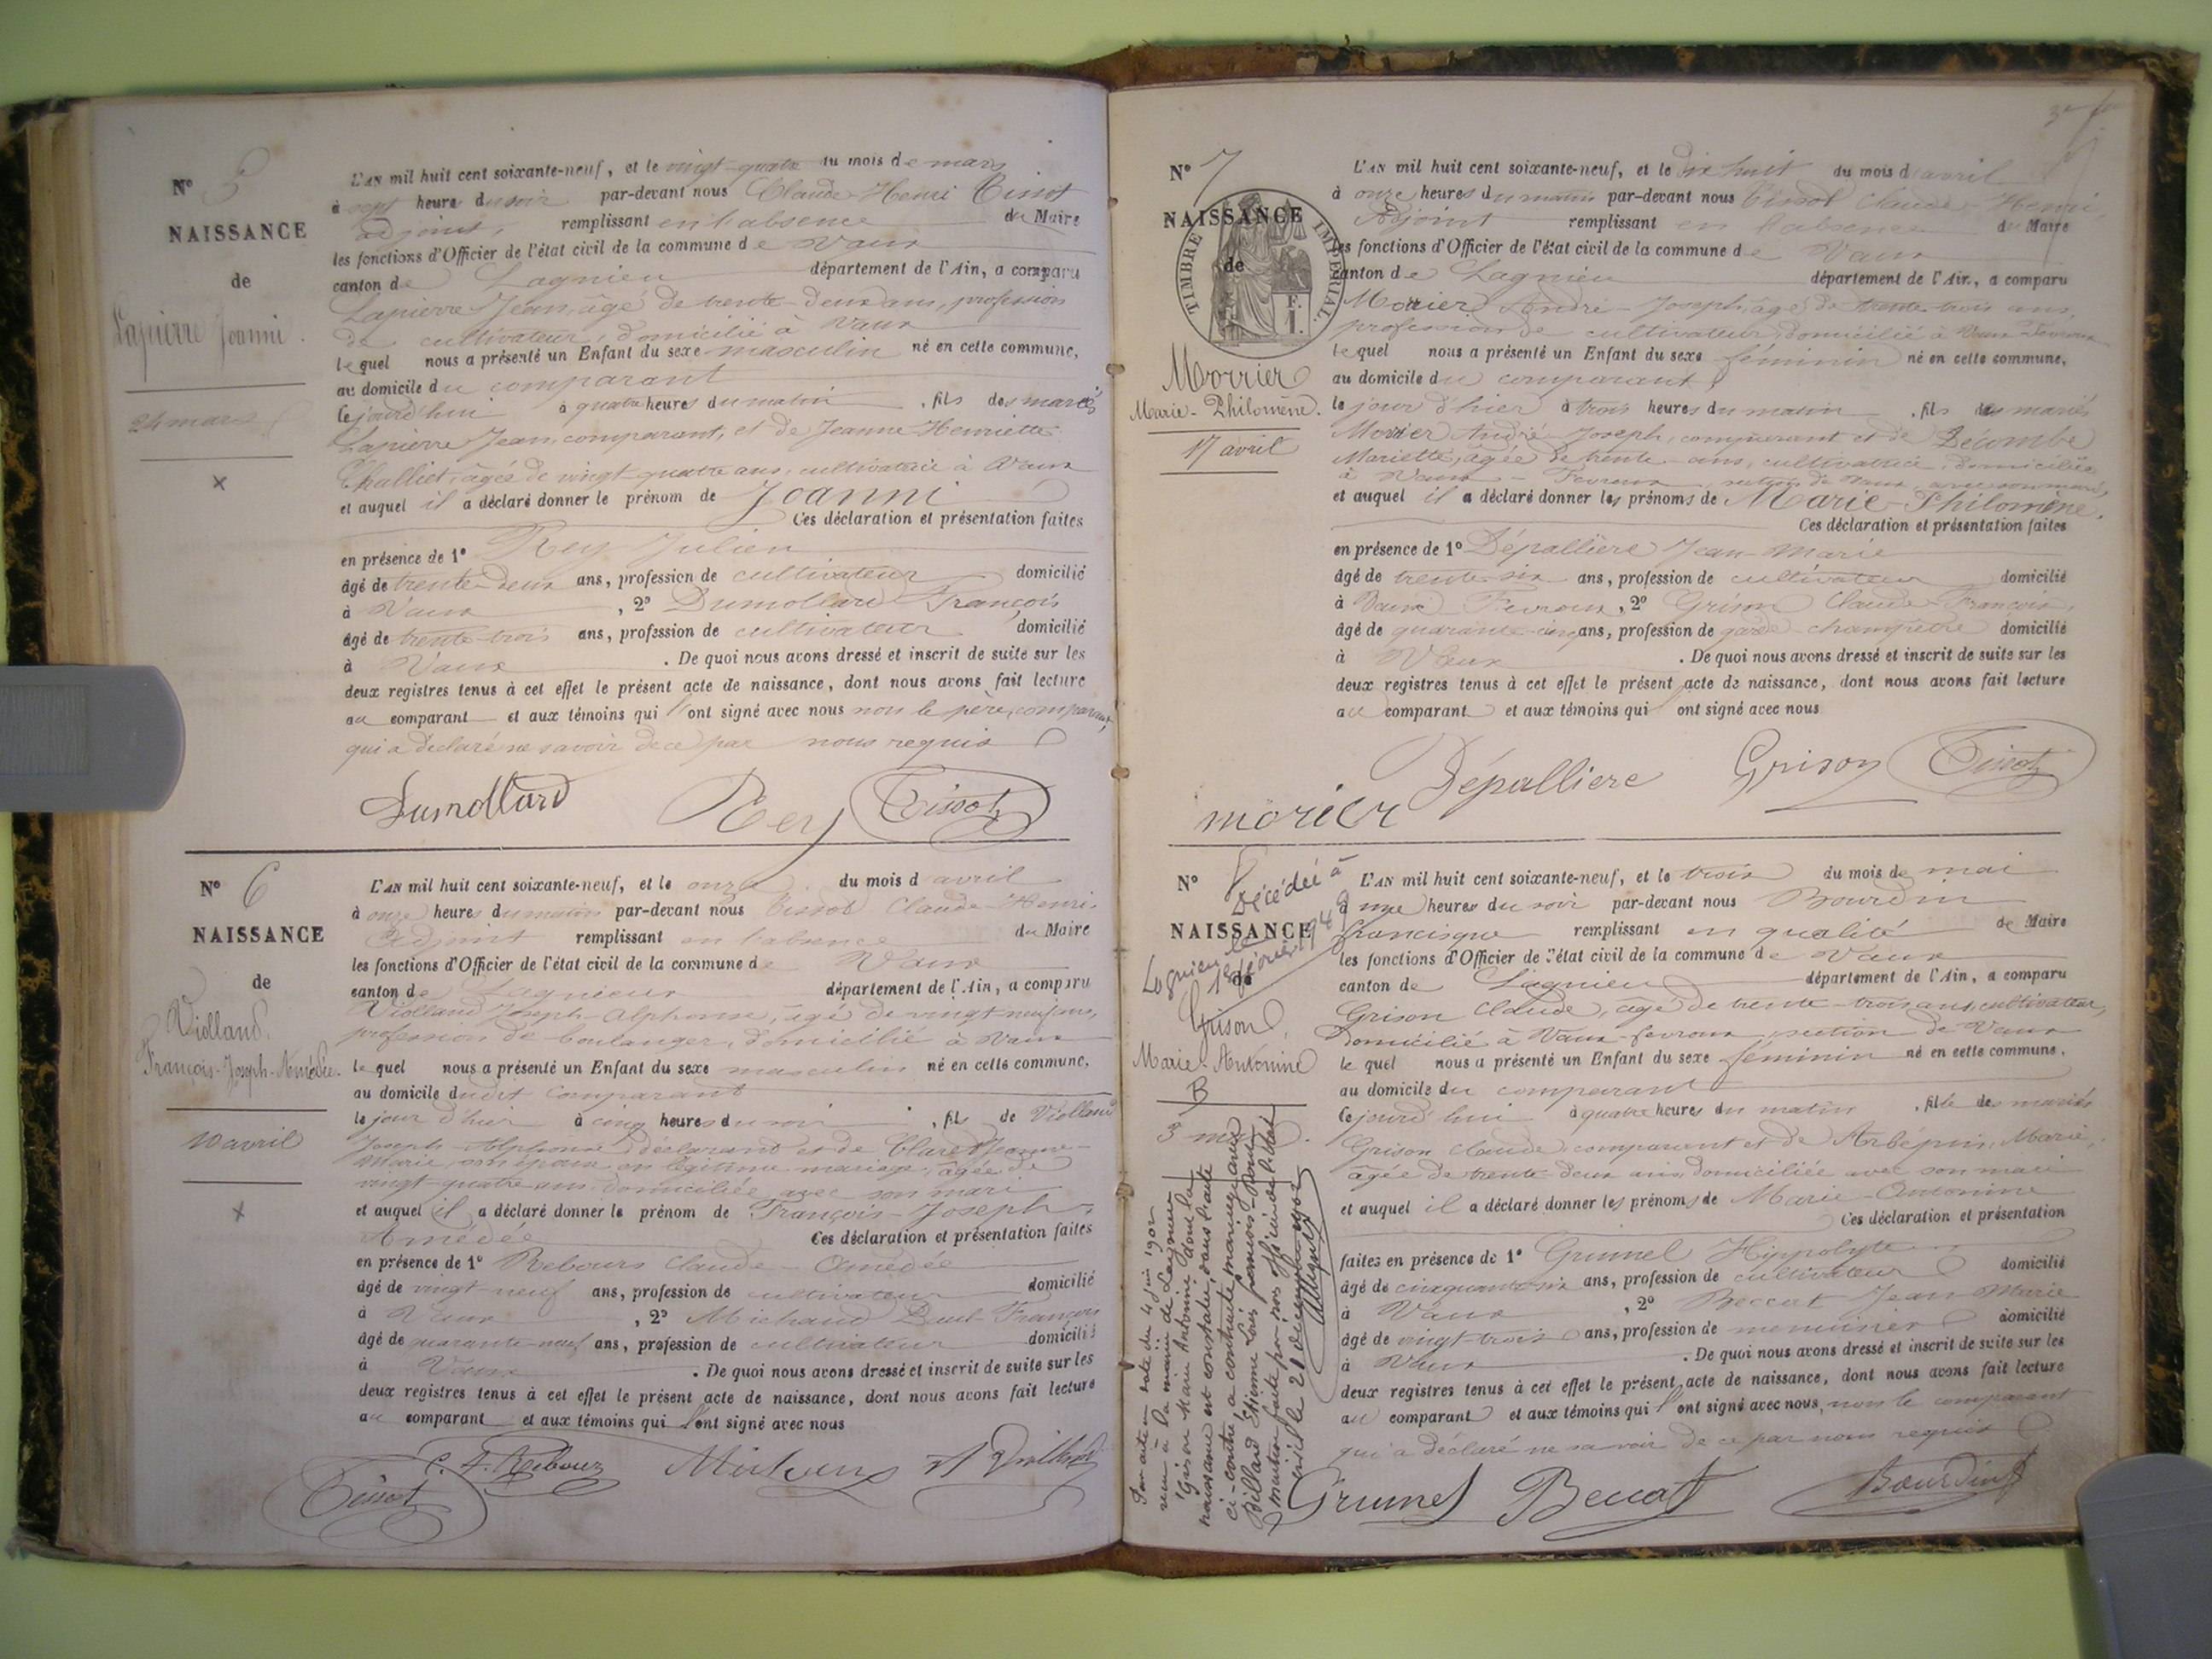 N° 5
NAISSANCE
de
Lapierre Joanni.
24 mars
L'AN mil huit cent soixante-neuf, et le vingt-quatre du mois de mars
à sept heures du soir par-devant nous Claude-Henri Tissot
adjoint, remplissant en l'absence du Maire
les fonctions d'Officier de l'état civil de la commune de Vaux
canton de Lagnieu département de l'Ain, a comparu
Lapierre Jean, âgé de trente-deux ans, profession
de cultivateur, domicilié à Vaux
lequel nous a présenté un Enfant du sexe masculin né en cette commune,
au domicile du comparant
cejourd'hui à quatre heures du matin, fils des mariés
Lapierre Jean, comparant, et de Jeanne Henriette
Challiet, âgée de vingt-quatre ans, cultivatrice à Vaux
et auquel il a déclaré donner le prénom de Joanni
Ces déclaration et présentation faites
en présence de 1° Rey Julien
âgé de trente-deux ans, profession de cultivateur domicilié
à Vaux, 2° Dumollard François
âgé de trente-trois ans, profession de cultivateur domicilié
à Vaux. De quoi nous avons dressé et inscrit de suite sur les
deux registres tenus à cet effet le présent acte de naissance, dont nous avons fait lecture
au comparant et aux témoins qui l'ont signé avec nous non le père, comparant,
qui a déclaré ne savoir de ce par nous requis
Dumollard Rey Tissot
N° 6
NAISSANCE
de
Violland
François-Joseph-Amédée.
10 avril
L'AN mil huit cent soixante-neuf, et le onze du mois d'avril
à onze heures du matin par-devant nous Tissot Claude-Henri
Adjoint remplissant en l'absence du Maire
les fonctions d'Officier de l'état civil de la commune de Vaux
canton de Lagnieux département de l'Ain, a comparu
Violland Joseph-Alphonse, âgé de vingt-neuf ans,
profession de boulanger, domicilié à Vaux
lequel nous a présenté un Enfant du sexe masculin né en cette commune,
au domicile dudit comparant
le jour d'hier à cinq heures du soir, fils de Violland
Joseph-Alphonse déclarant et de Claret Jeanne-
Marie, son épouse en légitime mariage, âgée de
vingt-quatre ans domiciliée avec son mari
et auquel il a déclaré donner le prénom de François-Joseph-
Amédée Ces déclaration et présentation faites
en présence de 1° Rebours Claude-Amédée
âgé de vingt-neuf ans, profession de cultivateur domicilié
à Vaux, 2° Michaud François
âgé de quarante-neuf ans, profession de cultivateur domicilié
à Vaux. De quoi nous avons dressé et inscrit de suite sur les
deux registres tenus à cet effet le présent acte de naissance, dont nous avons fait lecture
au comparant et aux témoins qui l'ont signé avec nous
Tissot
N° 7
NAISSANCE
de
TIMBRE IMPÉRIAL.
Morrier
Marie-Philomène.
17 avril
L'AN mil huit cent soixante-neuf, et le dix huit du mois d'avril
à onze heures du matin par-devant nous Tissot Claude-Henri
Adjoint remplissant en l'absence du Maire
les fonctions d'Officier de l'état civil de la commune de Vaux
canton de Lagnieu département de l'Ain, a comparu
Morier André-Joseph, âgé de trente-trois ans,
profession de cultivateur, domicilié à Vaux Févroux
lequel nous a présenté un Enfant du sexe féminin né en cette commune,
au domicile du comparant
le jour d'hier à trois heures du matin, fils des mariés
Morier André-Joseph, comparant et de Décombe
Mariette, âgée de trente ans, cultivatrice, domiciliée
à Vaux-Fevroux, section de Vaux, avec son mari,
et auquel il a déclaré donner les prénoms de Marie-Philomène.
Ces déclaration et présentation faites
en présence de 1° Dépallière Jean-Marie
âgé de trente-six ans, profession de cultivateur domicilié
à Vaux Fevroux, 2° Grison Claude-François,
âgé de quarante-cinq ans, profession de garde-champêtre domicilié
à Vaux. De quoi nous avons dressé et inscrit de suite sur les
deux registres tenus à cet effet le présent acte de naissance, dont nous avons fait lecture
au comparant et aux témoins qui ont signé avec nous
morier Dépalliere Grison Tissot
N° 8
NAISSANCE
de
Décédée à
Lagnieu le
1er février 1949
Grison
Marie-Antonine
B
3 mai.
Par acte en date du 4 juin 1902
reçu à la mairie de Lagnieu
Grison Marie Antonine dont la
naissance est constatée dans l'acte
ci-contre a contracté mariage avec
Billard Etienne Louis François
Mention faite par nous officier de l'état
civil le
L'AN mil huit cent soixante-neuf, et le trois du mois de mai
à une heure du soir par-devant nous Bourdin
Francisque remplissant en qualité de Maire
les fonctions d'Officier de l'état civil de la commune de Vaux
canton de Lagnieu département de l'Ain, a comparu
Grison Claude, âgé de trente-trois ans, cultivateur,
Domicilié à Vaux-fevroux, section de Vaux
lequel nous a présenté un Enfant du sexe féminin né en cette commune,
au domicile du comparant
cejourd'hui à quatre heures du matin, fille des mariés
Grison Claude, comparant et de Arbépin, Marie,
âgée de trente-deux ans, domiciliée avec son mari
et auquel il a déclaré donner les prénoms de Marie-Antonine
Ces déclaration et présentation
faites en présence de 1° Grumel Hippolyte domicilié
âgé de cinquante-six ans, profession de cultivateur
à Vaux, 2° Beccat Jean Marie
âgé de vingt-trois ans, profession de menuisier domicilié
à Vaux. De quoi nous avons dressé et inscrit de suite sur les
deux registres tenus à cet effet le présent acte de naissance, dont nous avons fait lecture
au comparant et aux témoins qui l'ont signé avec nous, non le comparant
qui a déclaré ne savoir de ce par nous requis
Grumel Beccat Bourdin